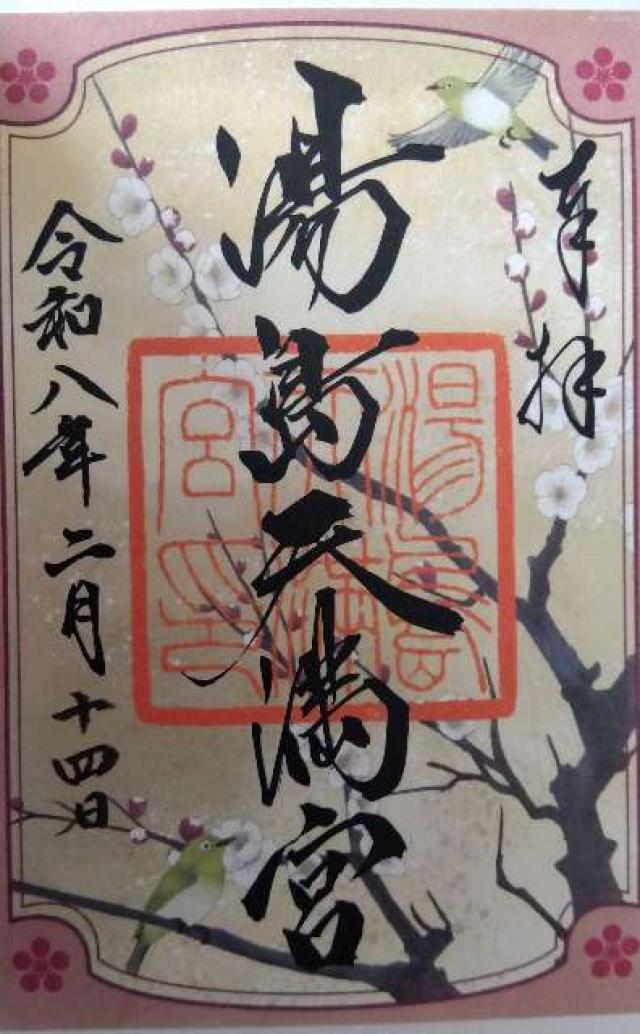 奉拝
湯島天満宮
令和八年二月十四日
湯島天満宮印